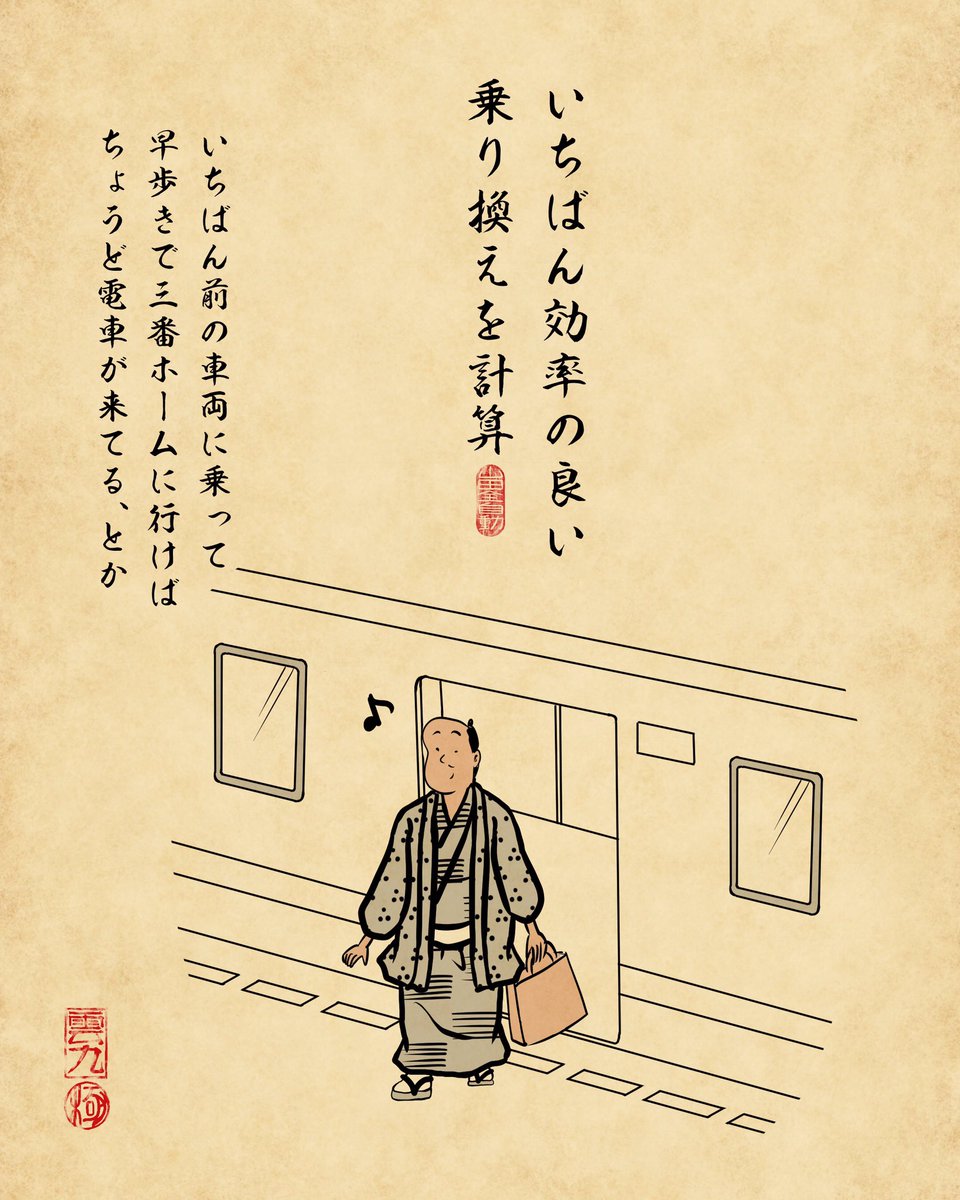 いちばん効率の良い
乗り換えを計算
いちばん前の車両に乗って
早歩きで三番ホームに行けば
ちょうど電車が来てる、とか